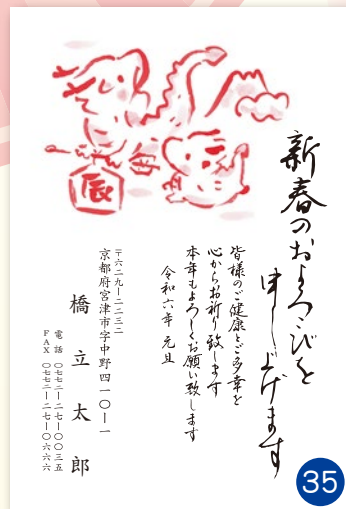 新春のおよろこびを
申し上げます
皆様のご健康とご多幸を
心からお祈り致します
本年もよろしくお願い致します
令和六年 元旦
〒六二九ー二二三二
京都府宮津市字中野四一〇ー一
橋立太郎
電話 〇七七二ー二七ー〇〇三五
FAX 〇七七二ー二七ー〇六六六
辰
35